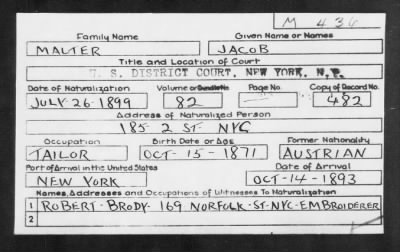 M 436
Family Name Given Name or Names
MALTER JACOB
Title and Location of Court
U. S. DISTRICT COURT, NEW YORK, N.Y.
Date of Naturalization Volume or Bundle No. Page No. Copy of Record No.
JULY-26-1899 82 482
Address of Naturalized Person
185-2 ST- NYC
Occupation Birth Date or Age Former Nationality
TAILOR OCT-15-1871 AUSTRIAN
Port of Arrival in the United States Date of Arrival
NEW YORK OCT-14-1893
Names, Addresses and Occupations of Witnesses To Naturalization
1 ROBERT-BRODY-169 NORFOLK-ST-NYC-EMBROIDERER
2